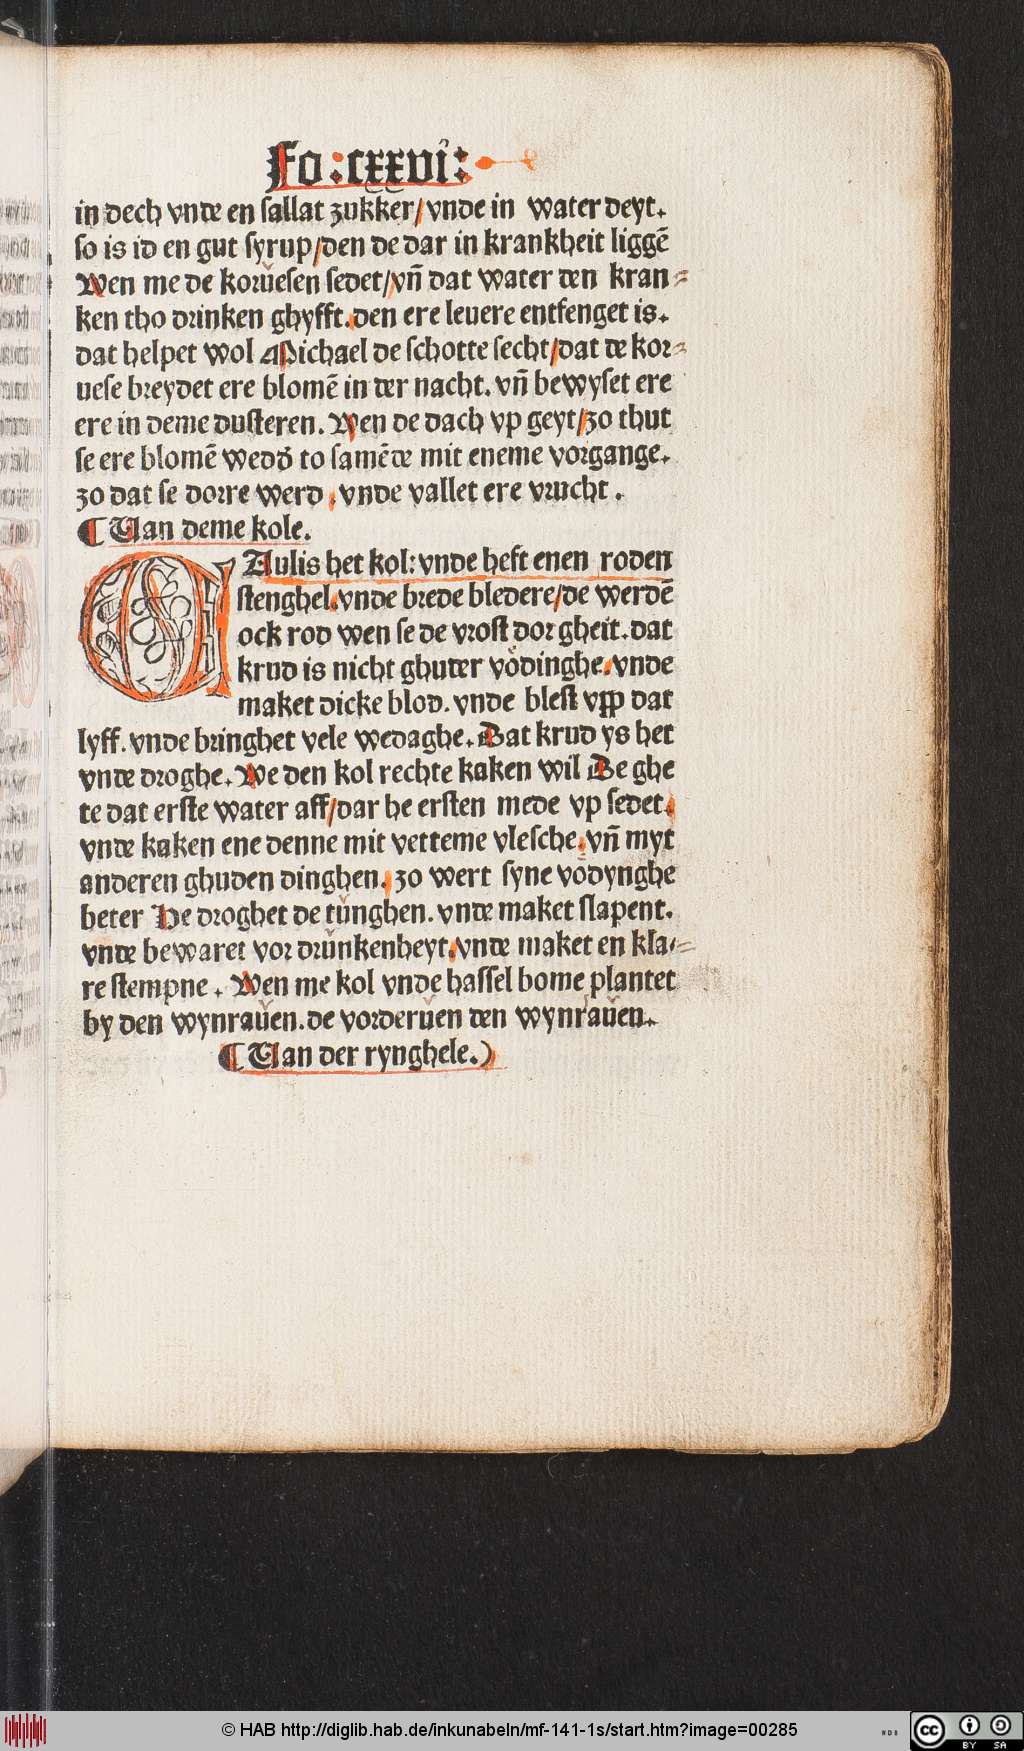 Fo:cxxvi:
in dech vnde en sallat zukker/vnde in water deyt.
so is id en gut syrup/den de dar in krankheit liggē
Wen me de korůesen sedet/vñ dat water den kran⸗
ken tho drinken ghyfft.den ere leuere entfenget is.
dat helpet wol Michael de schotte secht/dat de kor⸗
uese breydet ere blomē in der nacht. vñ bewyset ere
ere in deme dusteren. Wen de dach vp geyt/zo thut
se ere blomē wedď to samēde mit eneme vorgange.
zo dat se dorre werd . vnde vallet ere vrucht .
¶ Van deme kole.
CAulis het kol: vnde heft enen roden
stenghel.vnde brede bledere/de werdē
ock rod wen se de vrost dor gheit.dat
krud is nicht ghuter vȯdinghe.vnde
maket dicke blod. vnde blest vpp dat
lyff. vnde bringhet vele wedaghe. Dat krud ys het
vnde droghe. We den kol rechte kaken wil De ghe
te dat erste water aff/dar he ersten mede vp sedet.
vnde kaken ene denne mit vetteme vlesche.vñ myt
anderen ghuden dinghen. zo wert syne vȯdynghe
beter He droghet de tůnghen. vnde maket slapent.
vnde bewaret vor drůnkenheyt.vnde maket en kla⸗
re stempne . Wen me kol vnde hassel bome plantet
by den wynraůen.de vorderůen den wynraůen.
¶ Van der rynghele.)
© HAB http://diglib.hab.de/inkunabeln/mf-141-1s/start.htm?image=00285
cc BY SA